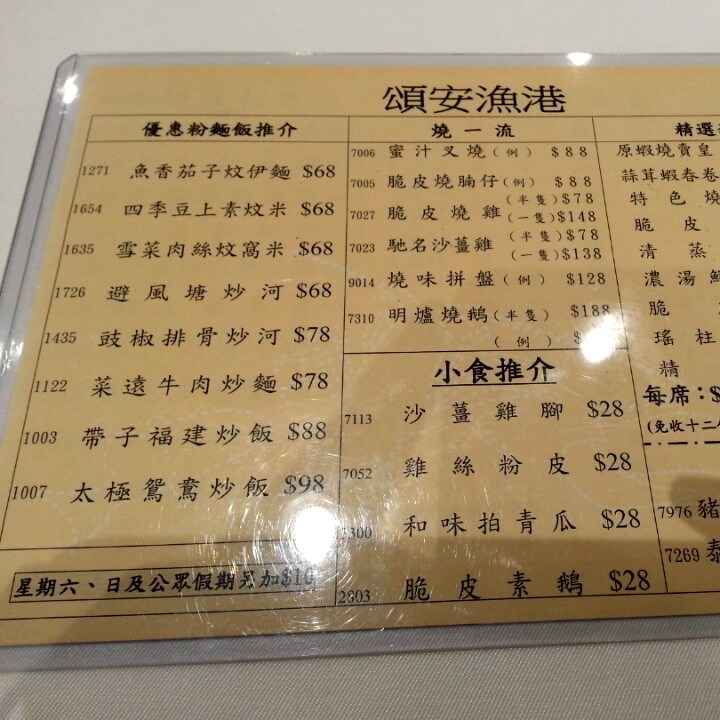 頌安漁港
優惠粉麵飯推介
1271 魚香茄子炆伊麵 $68
1654 四季豆上素炆米 $68
1635 雪菜肉絲炆窩米 $68
1726 避風塘炒河 $68
1435 豉椒排骨炒河 $78
1122 菜遠牛肉炒麵 $78
1003 帶子福建炒飯 $88
1007 太極鴛鴦炒飯 $98
星期六、日及公眾假期另加$10
燒一流
7006 蜜汁叉燒(例) $88
7005 脆皮燒腩仔(例) $88
7027 脆皮燒雞 (半隻)$78
(一隻)$148
7023 馳名沙薑雞 (半隻)$78
(一隻)$138
9014 燒味拼盤(例) $128
7310 明爐燒鵝(半隻) $188
(例) $
小食推介
7113 沙薑雞腳 $28
7052 雞絲粉皮 $28
300 和味拍青瓜 $28
2803 脆皮素鵝 $28
精選
原蝦燒賣皇
蒜茸蝦春卷
特色燒
脆皮
清蒸
濃湯
脆
瑤柱
精
每席：$
(免收十二
7976 豬
7269 泰